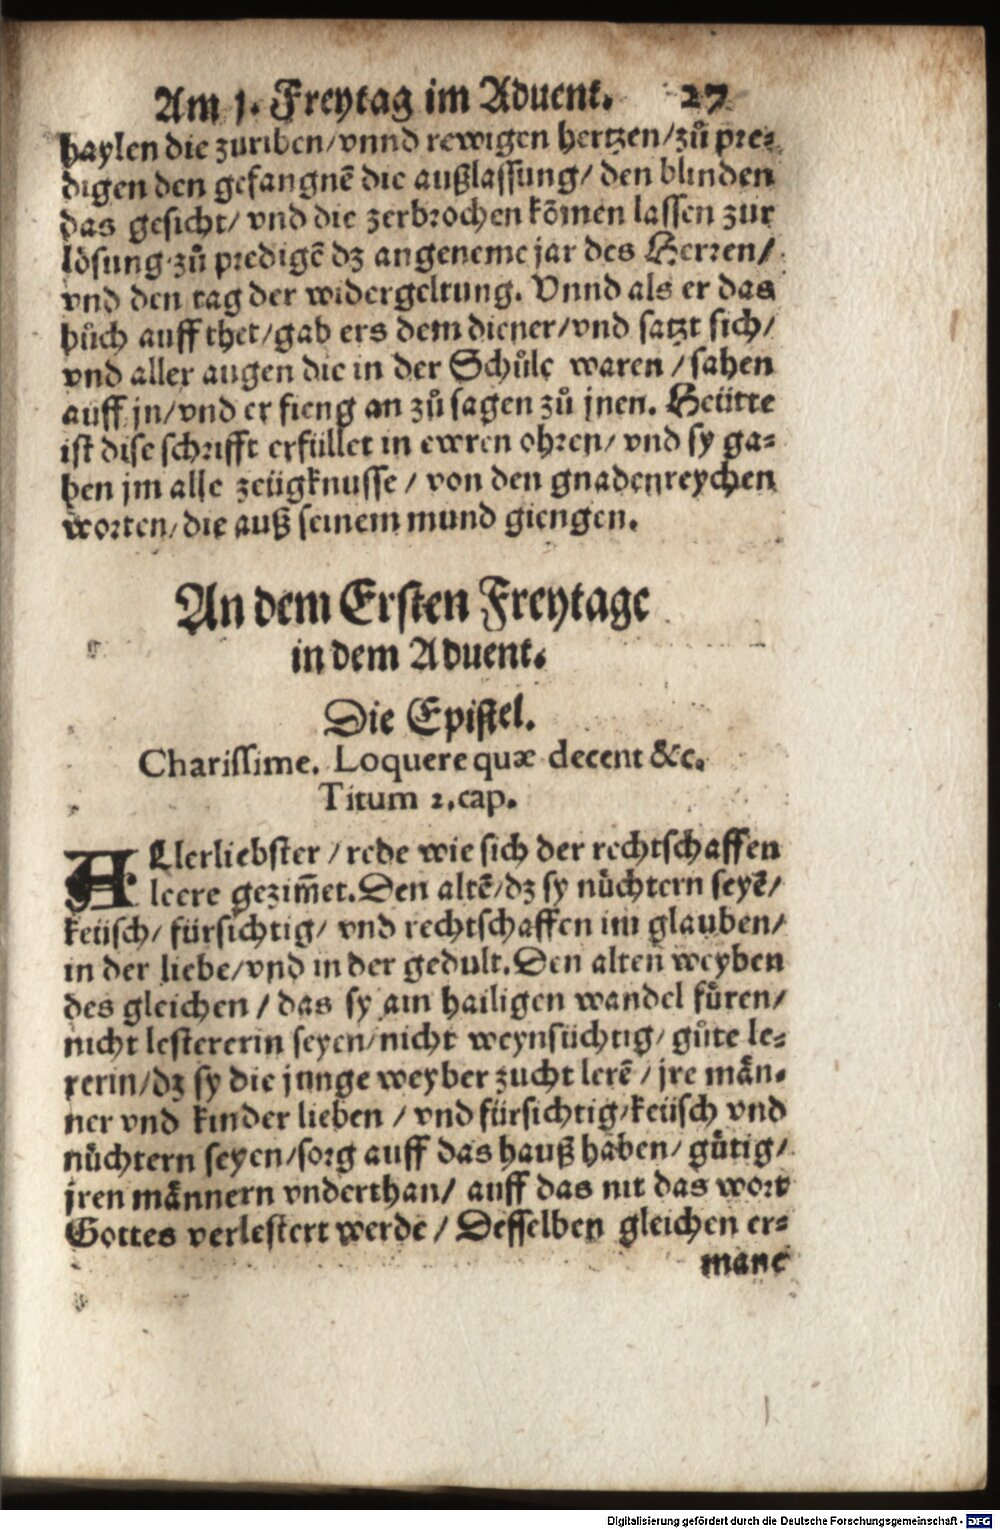 Am 1. Freytag im Aduent. 27
haylen die zuriben/vnnd rewigen hertzen/zů pre⸗
digen den gefangnẽ die außlassung/ den blinden
das gesicht/ vnd die zerbrochen kõmen lassen zur
lösung zů predigẽ dz angeneme jar des Herren/
vnd den tag der widergeltung. Vnnd als er das
bůch auff thet/gab ers dem diener/vnd satzt sich/
vnd aller augen die in der Schůle waren / sahen
auff jn/vnd er fieng an zů sagen zů jnen. Heütte
ist dise schrifft erfüllet in ewren ohren/ vnd sy ga⸗
ben jm alle zeügknusse / von den gnadenreychen
worten/die auß seinem mund giengen.
An dem Ersten Freytage
in dem Aduent.
Die Epistel.
Charissime. Loquere quæ decent &c.
Titum 2.cap.
ALlerliebster / rede wie sich der rechtschaffen
leere gezim̃et. Den altẽ/dz sy nüchtern seyẽ/
keüsch/ fürsichtig/ vnd rechtschaffen im glauben/
in der liebe/vnd in der gedult. Den alten weyben
des gleichen / das sy ain hailigen wandel füren/
nicht lestererin seyen/nicht weynsüchtig/ gůte le⸗
rerin/dz sy die junge weyber zucht lerẽ / jre män⸗
ner vnd kinder lieben / vnd fürsichtig/keüsch vnd
nüchtern seyen/sorg auff das hauß haben/ gütig/
jren männern vnderthan/ auff das nit das wort
Gottes verlestert werde / Desselben gleichen er⸗
mane
Digitalisierung gefördert durch die Deutsche Forschungsgemeinschaft - DFG